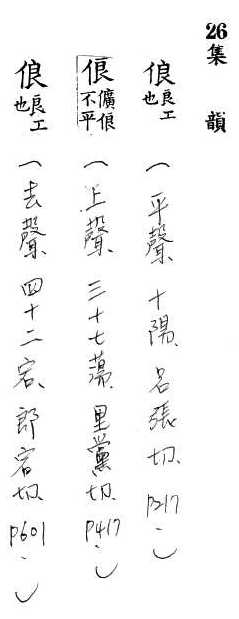 26集韻
俍良工也（平聲、十陽、呂張切、P217.）
俍㑽俍不平（上聲、三十七蕩、里黨切、P417.）
俍良工也（去聲、四十二宕、郎宕切、P601.）